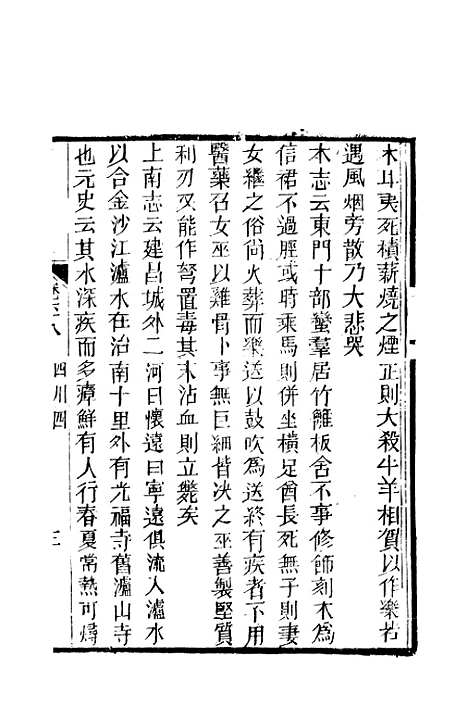 木耳夷死積薪燒之煙正則大殺牛羊相賀以作樂若
遇風烟旁散乃大悲哭
本志云東門十部蠻羣居竹籬板舍不事修飾刻木為
信裙不過脛或時乘馬則併坐橫足酋長死無子則妻
女繼之俗尚火葬而樂送以鼓吹為送終有疾者不用
醫藥召女巫以雞骨卜事無巨細皆决之巫善製堅質
利刃又能作弩置毒其末沾血則立斃矣
上南志云建昌城外二河曰懷遠曰寧遠俱流入瀘水
以合金沙江瀘水在治南十里外有光福寺舊瀘山寺
也元史云其水深疾而多瘴鮮有人行春夏常熱可燖
卷之六八
四川四
三